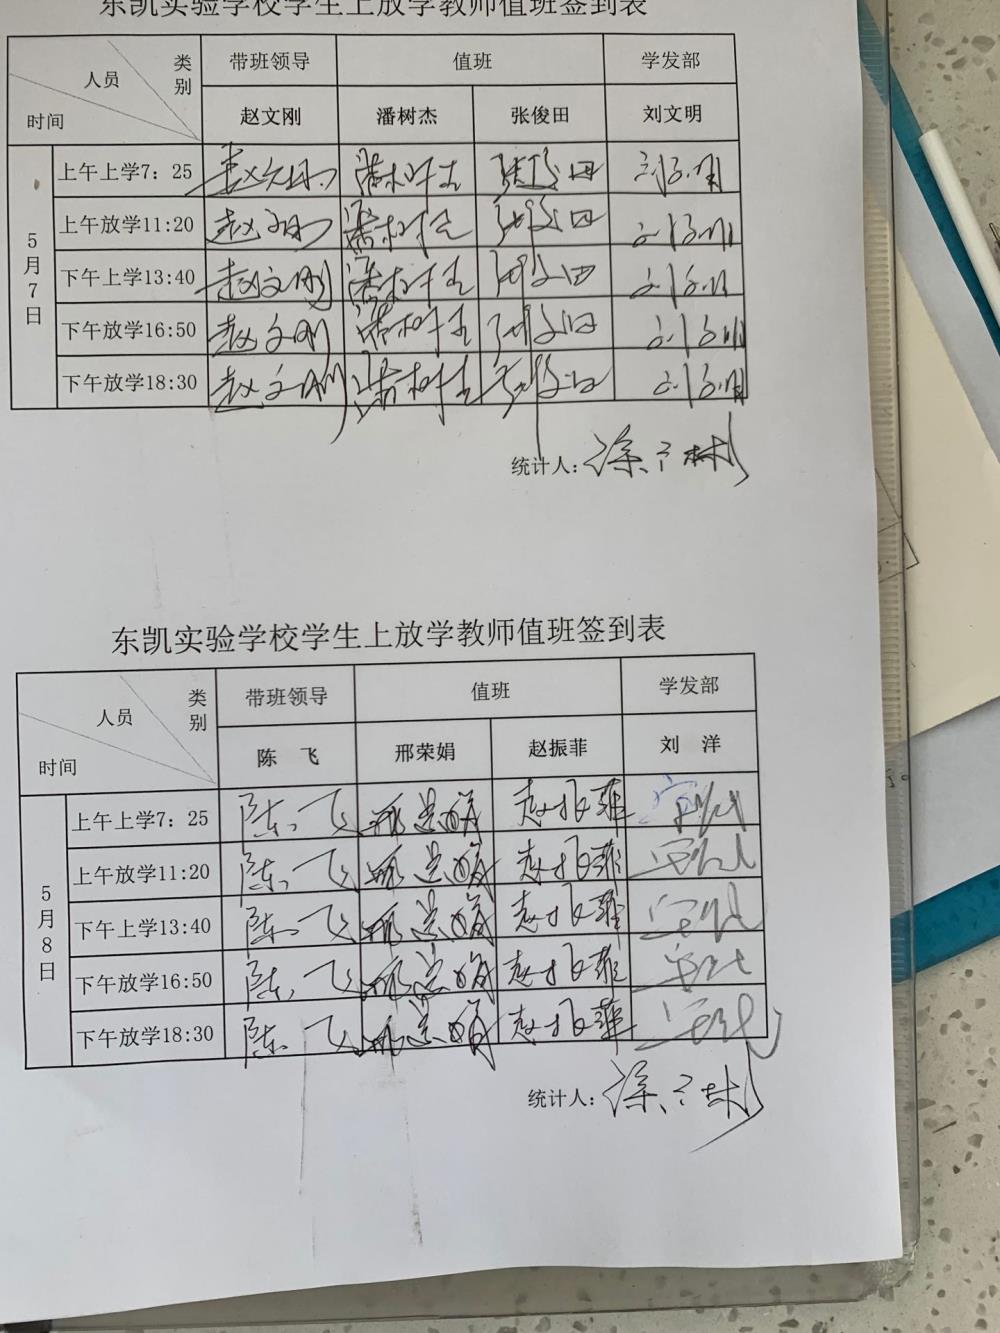 东凯实验学校学生上放学教师值班签到表
类别 人员 时间 带班领导 值班 学发部
赵文刚 潘树杰 张俊田 刘文明
5月7日
上午上学7：25 赵文刚 潘树杰 张俊田 刘文明
上午放学11:20 赵文刚 潘树杰 张俊田 刘文明
下午上学13:40 赵文刚 潘树杰 张俊田 刘文明
下午放学16:50 赵文刚 潘树杰 张俊田 刘文明
下午放学18:30 赵文刚 潘树杰 张俊田 刘文明
统计人：
东凯实验学校学生上放学教师值班签到表
类别 人员 时间 带班领导 值班 学发部
陈 飞 邢荣娟 赵振菲 刘 洋
5月8日
上午上学7：25 陈飞 邢荣娟 赵振菲
上午放学11:20 陈飞 邢荣娟 赵振菲
下午上学13:40 陈飞 邢荣娟 赵振菲
下午放学16:50 陈飞 邢荣娟 赵振菲
下午放学18:30 陈飞 邢荣娟 赵振菲
统计人：